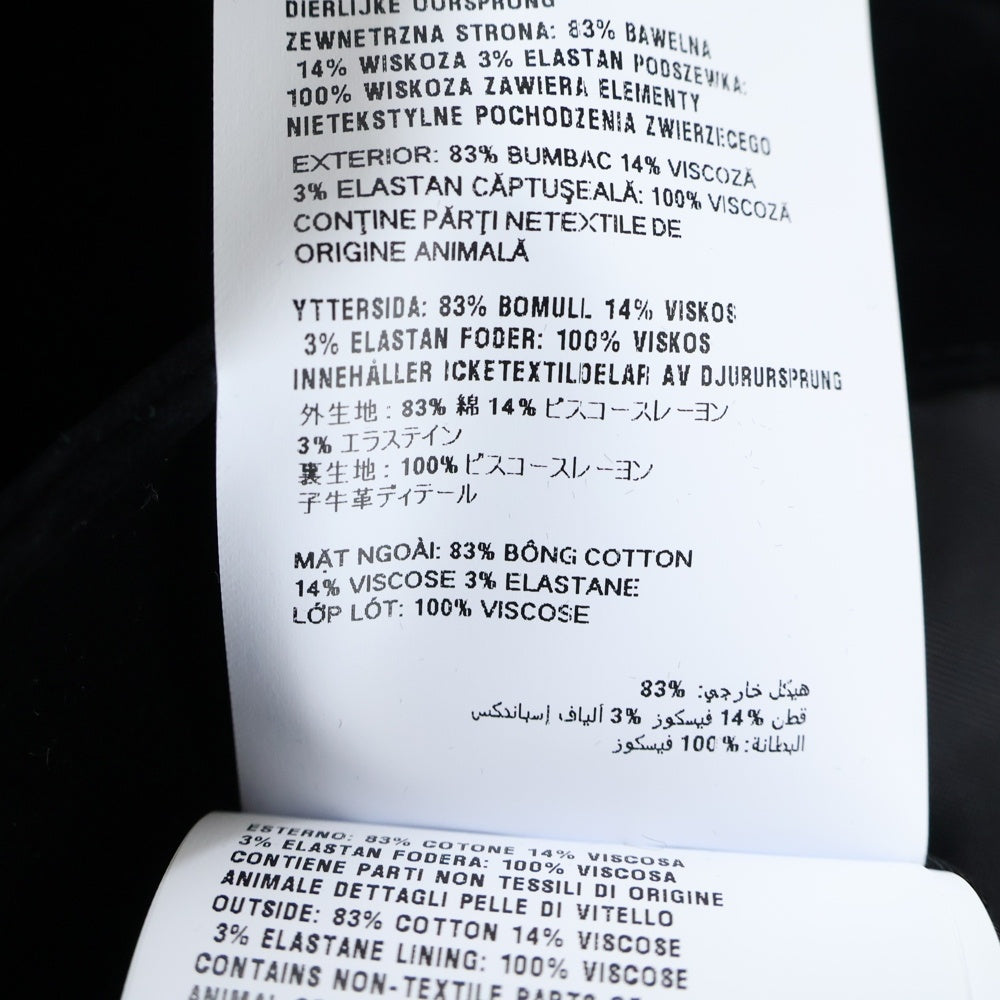 DIERLIJKE OORSPRONG
ZEWNETRZNA STRONA: 83% BAWELNA
14% WISKOZA 3% ELASTAN PODSZEWKA:
100% WISKOZA ZAWIERA ELEMENTY
NIETEKSTYLNE POCHODZENIA ZWIERZECEGO
EXTERIOR: 83% BUMBAC 14% VISCOZĂ
3% ELASTAN CĂPTUŞEALĂ: 100% VISCOZĂ
CONŢINE PĂRŢI NETEXTILE DE
ORIGINE ANIMALĂ
YTTERSIDA: 83% BOMULL 14% VISKOS
3% ELASTAN FODER: 100% VISKOS
INNEHÅLLER ICKETEXTILDELAR AV DJURURSPRUNG
外生地 : 83% 綿 14% ビスコースレーヨン
3% エラステイン
裏生地 : 100% ビスコースレーヨン
子牛革ディテール
MẶT NGOÀI: 83% BÔNG COTTON
14% VISCOSE 3% ELASTANE
LỚP LÓT: 100% VISCOSE
هيكل خارجي: 83%
قطن 14% فيسكوز 3% ألياف إسباندكس
البطانة: % 100 فيسكوز
ESTERNO: 83% COTONE 14% VISCOSA
3% ELASTAN FODERA: 100% VISCOSA
CONTIENE PARTI NON TESSILI DI ORIGINE
ANIMALE DETTAGLI PELLE DI VITELLO
OUTSIDE: 83% COTTON 14% VISCOSE
3% ELASTANE LINING: 100% VISCOSE
CONTAINS NON-TEXTILE PARTS OF
ANIMAL